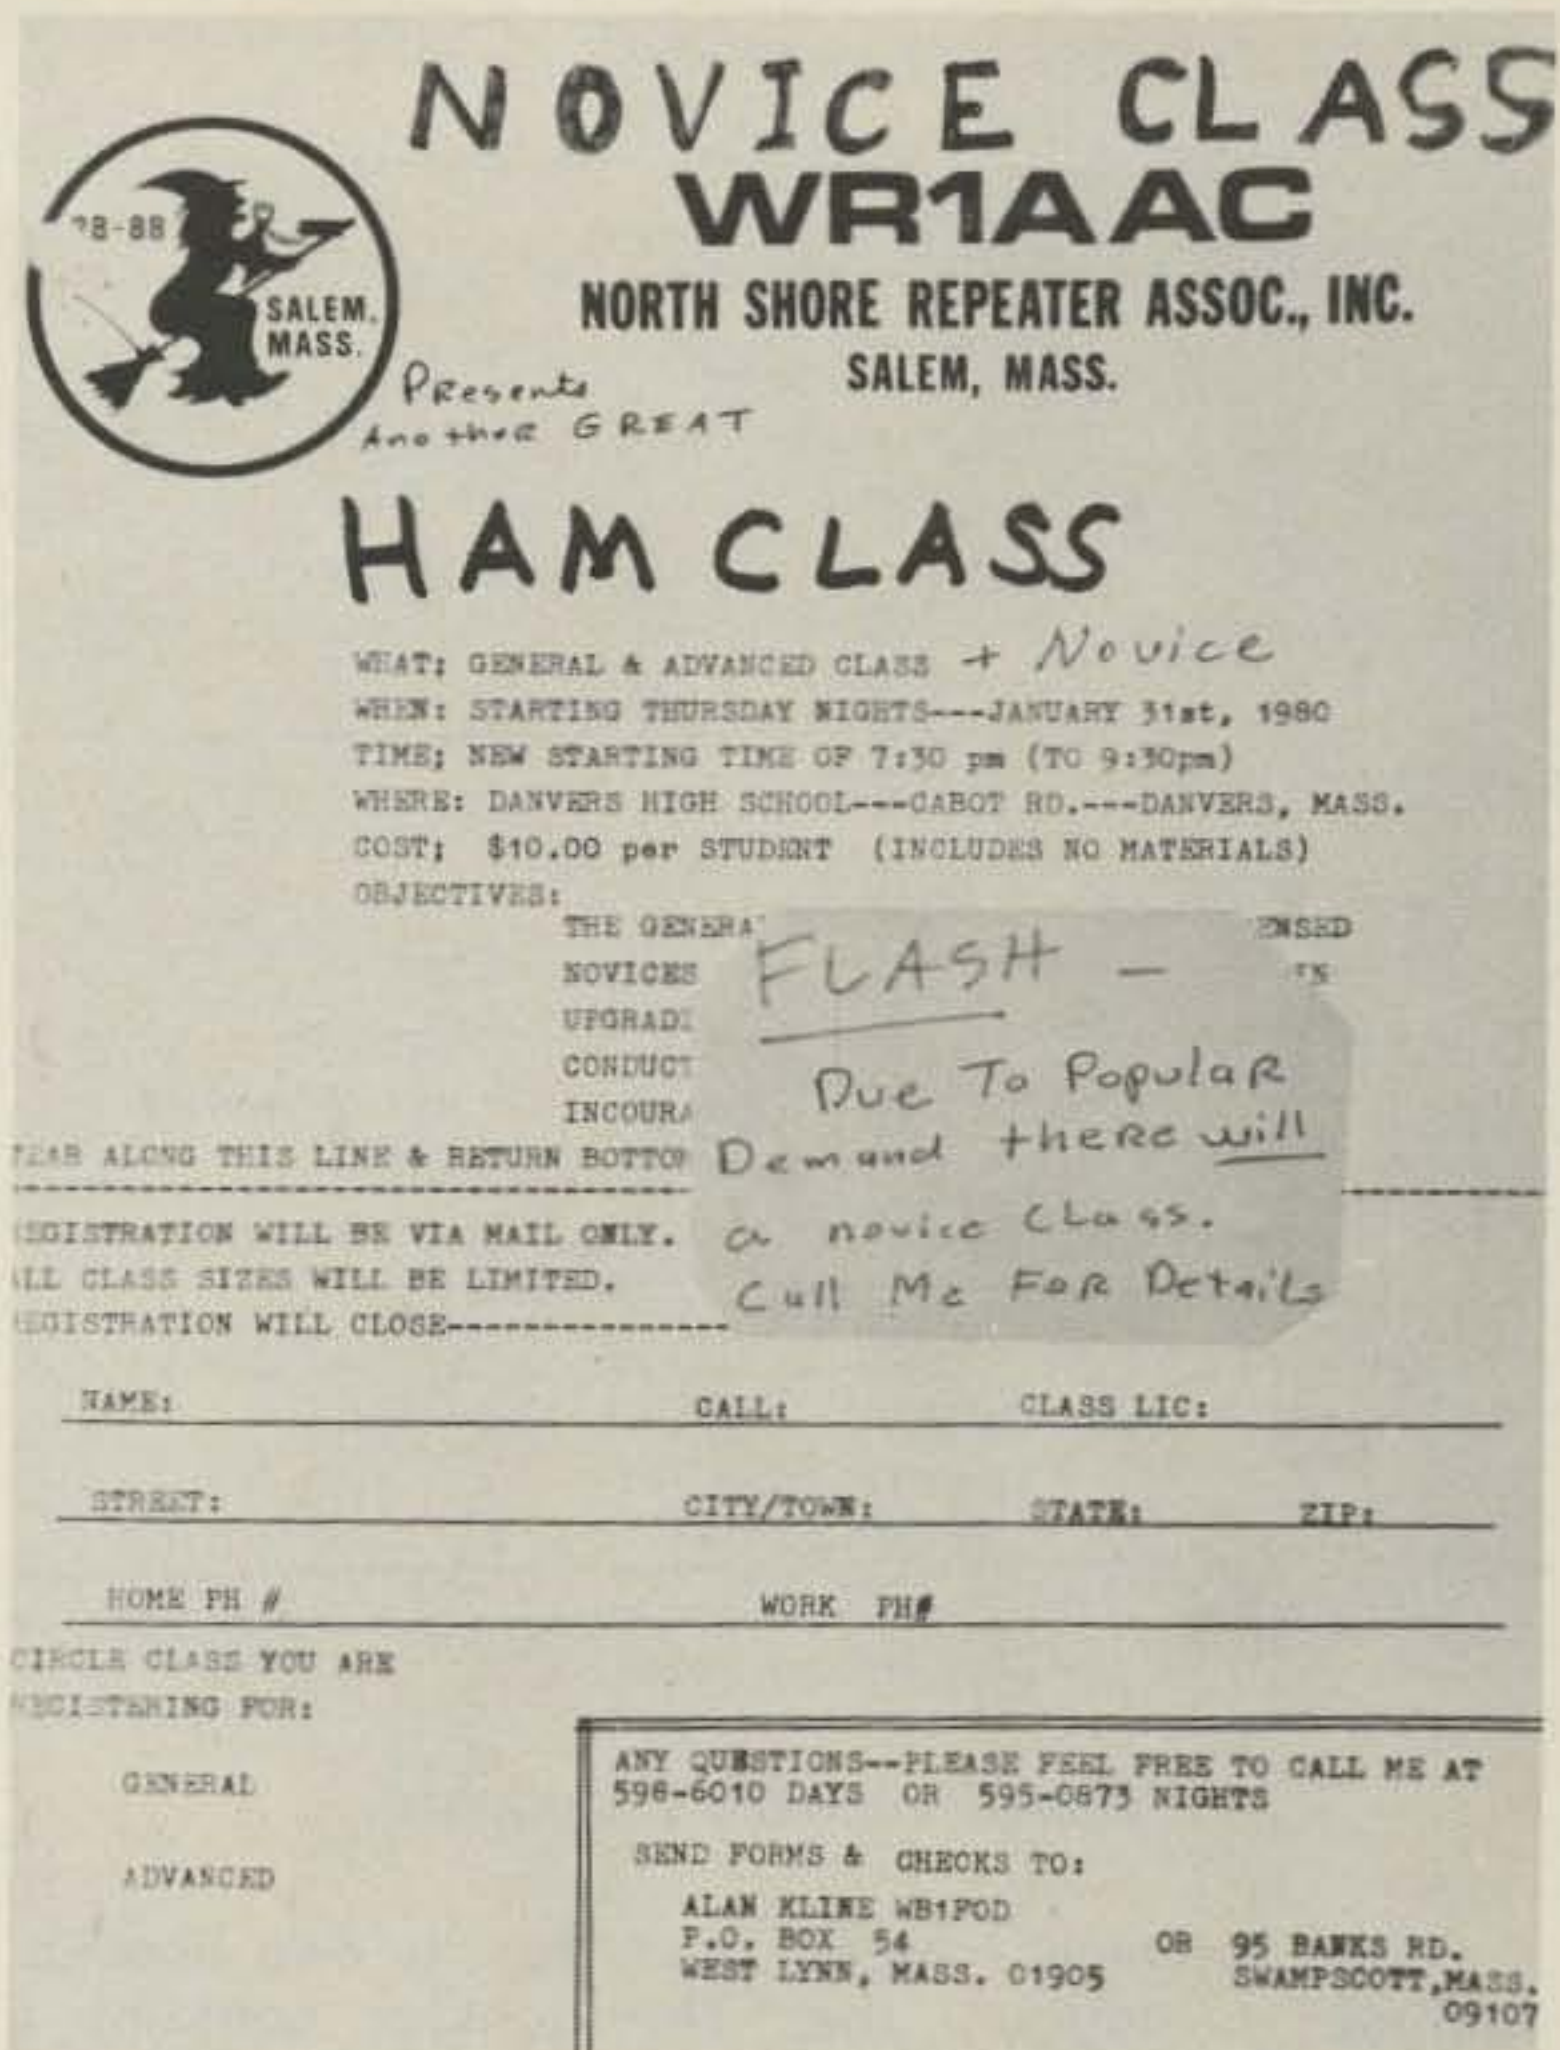 NOVICE CLASS
WR1AAC
NORTH SHORE REPEATER ASSOC., INC.
SALEM, MASS.
8-88
SALEM.
MASS.
Presents
Another GREAT
HAM CLASS
WHAT; GENERAL & ADVANCED CLASS + Novice
WHEN: STARTING THURSDAY NIGHTS---JANUARY 31st, 1980
TIME; NEW STARTING TIME OF 7:30 pm (TO 9:30pm)
WHERE: DANVERS HIGH SCHOOL---CABOT RD.---DANVERS, MASS.
COST; $10.00 per STUDENT (INCLUDES NO MATERIALS)
OBJECTIVES:
THE GENERA ENSED
NOVICES
UPGRADI
CONDUCT
INCOURA
FLASH -
Due To Popular
Demand there will
a novice Class.
Call Me For Details
TEAR ALONG THIS LINE & RETURN BOTTOM
REGISTRATION WILL BE VIA MAIL ONLY.
ALL CLASS SIZES WILL BE LIMITED.
REGISTRATION WILL CLOSE---------------
NAME: CALL: CLASS LIC:
STREET: CITY/TOWN: STATE: ZIP:
HOME PH # WORK PH#
CIRCLE CLASS YOU ARE
REGISTERING FOR:
GENERAL
ADVANCED
ANY QUESTIONS--PLEASE FEEL FREE TO CALL ME AT
598-6010 DAYS OR 595-0873 NIGHTS
SEND FORMS & CHECKS TO:
ALAN KLINE WB1FOD
P.O. BOX 54 OR 95 BANKS RD.
WEST LYNN, MASS. 01905 SWAMPSCOTT,MASS.
09107